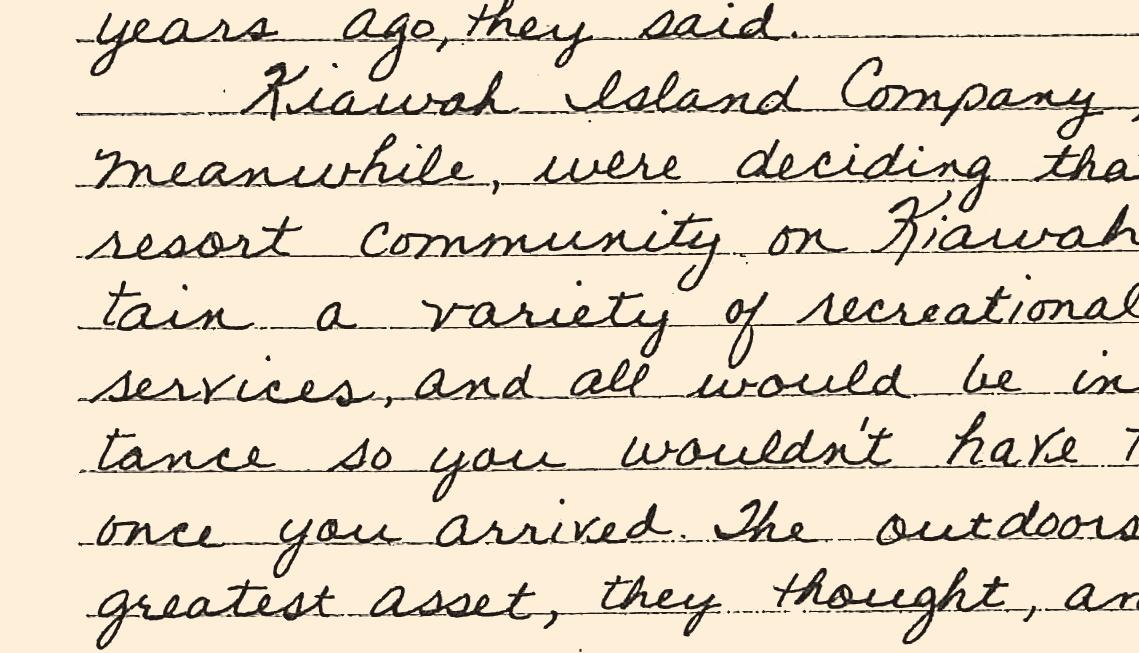 years ago, they said.
Kiawah Island Company,
meanwhile, were deciding tha
resort community on Kiawah
tain a variety of recreational
services, and all would be in
tance so you wouldn't have t
once you arrived. The outdoors
greatest asset, they thought, an